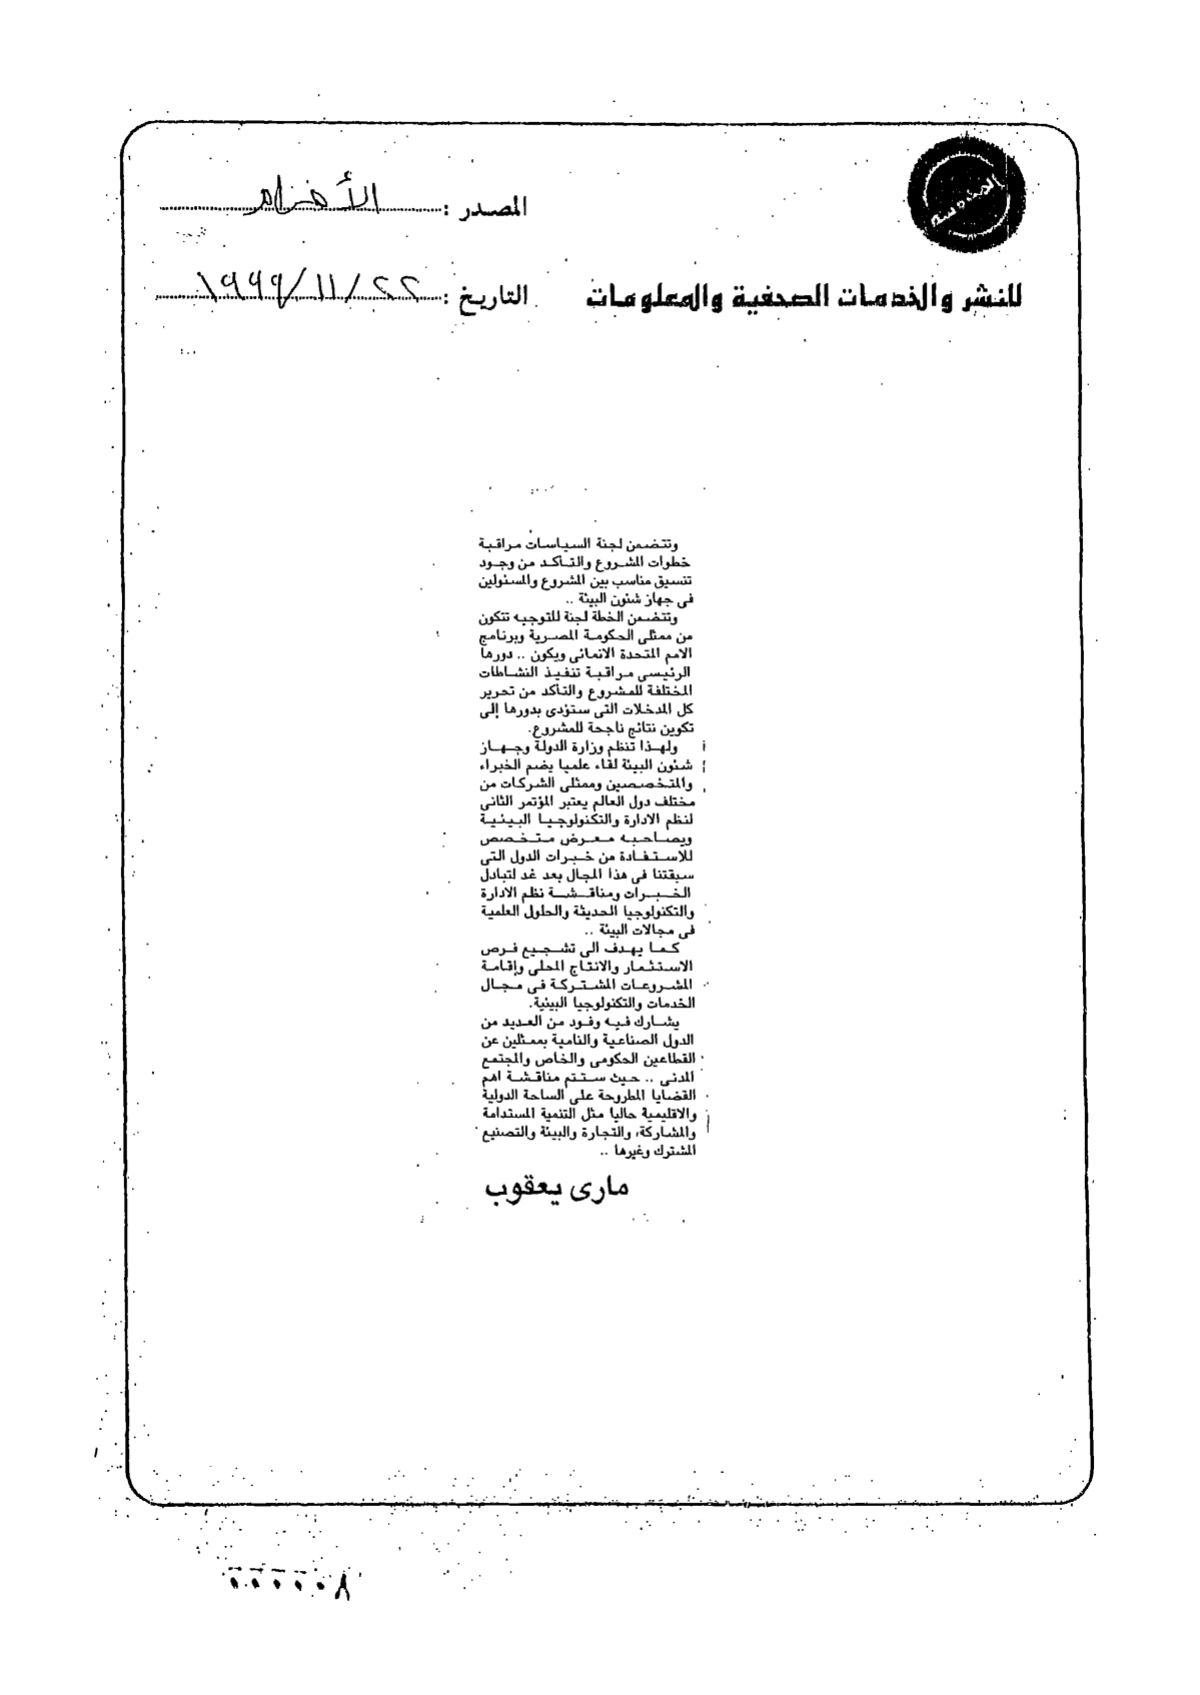 المصدر : الأهرام
للنشر والخدمات الصحفية والمعلومات
التاريخ : ١٩٩٩/١١/٢٢
وتتضمن لجنة السياسات مراقبة
خطوات المشروع والتاكد من وجود
تنسيق مناسب بين المشروع والمسئولين
فى جهاز شئون البيئة ..
وتتضمن الخطة لجنة للتوجيه تتكون
من ممثلى الحكومة المصرية وبرنامج
الامم المتحدة الانمائى ويكون .. دورها
الرئيسى مراقبة تنفيذ النشاطات
المختلفة للمشروع والتأكد من تحرير
كل المدخلات التى ستؤدى بدورها إلى
تكوين نتائج ناجحة للمشروع.
ولهذا تنظم وزارة الدولة وجهاز
شئون البيئة لقاء علميا يضم الخبراء
والمتخصصين وممثلى الشركات من
مختلف دول العالم يعتبر المؤتمر الثانى
لنظم الادارة والتكنولوجيا البيئية
ويصاحبه معرض متخصص
للاستفادة من خبرات الدول التى
سبقتنا فى هذا المجال بعد غد لتبادل
الخبرات ومناقشة نظم الادارة
والتكنولوجيا الحديثة والحلول العلمية
فى مجالات البيئة ..
كما يهدف الى تشجيع فرص
الاستثمار والانتاج المحلى وإقامة
المشروعات المشتركة فى مجال
الخدمات والتكنولوجيا البيئية.
يشارك فيه وفود من العديد من
الدول الصناعية والنامية بممثلين عن
القطاعين الحكومى والخاص والمجتمع
المدنى .. حيث ستتم مناقشة اهم
القضايا المطروحة على الساحة الدولية
والاقليمية حاليا مثل التنمية المستدامة
والمشاركة، والتجارة والبيئة والتصنيع
المشترك وغيرها ..
مارى يعقوب